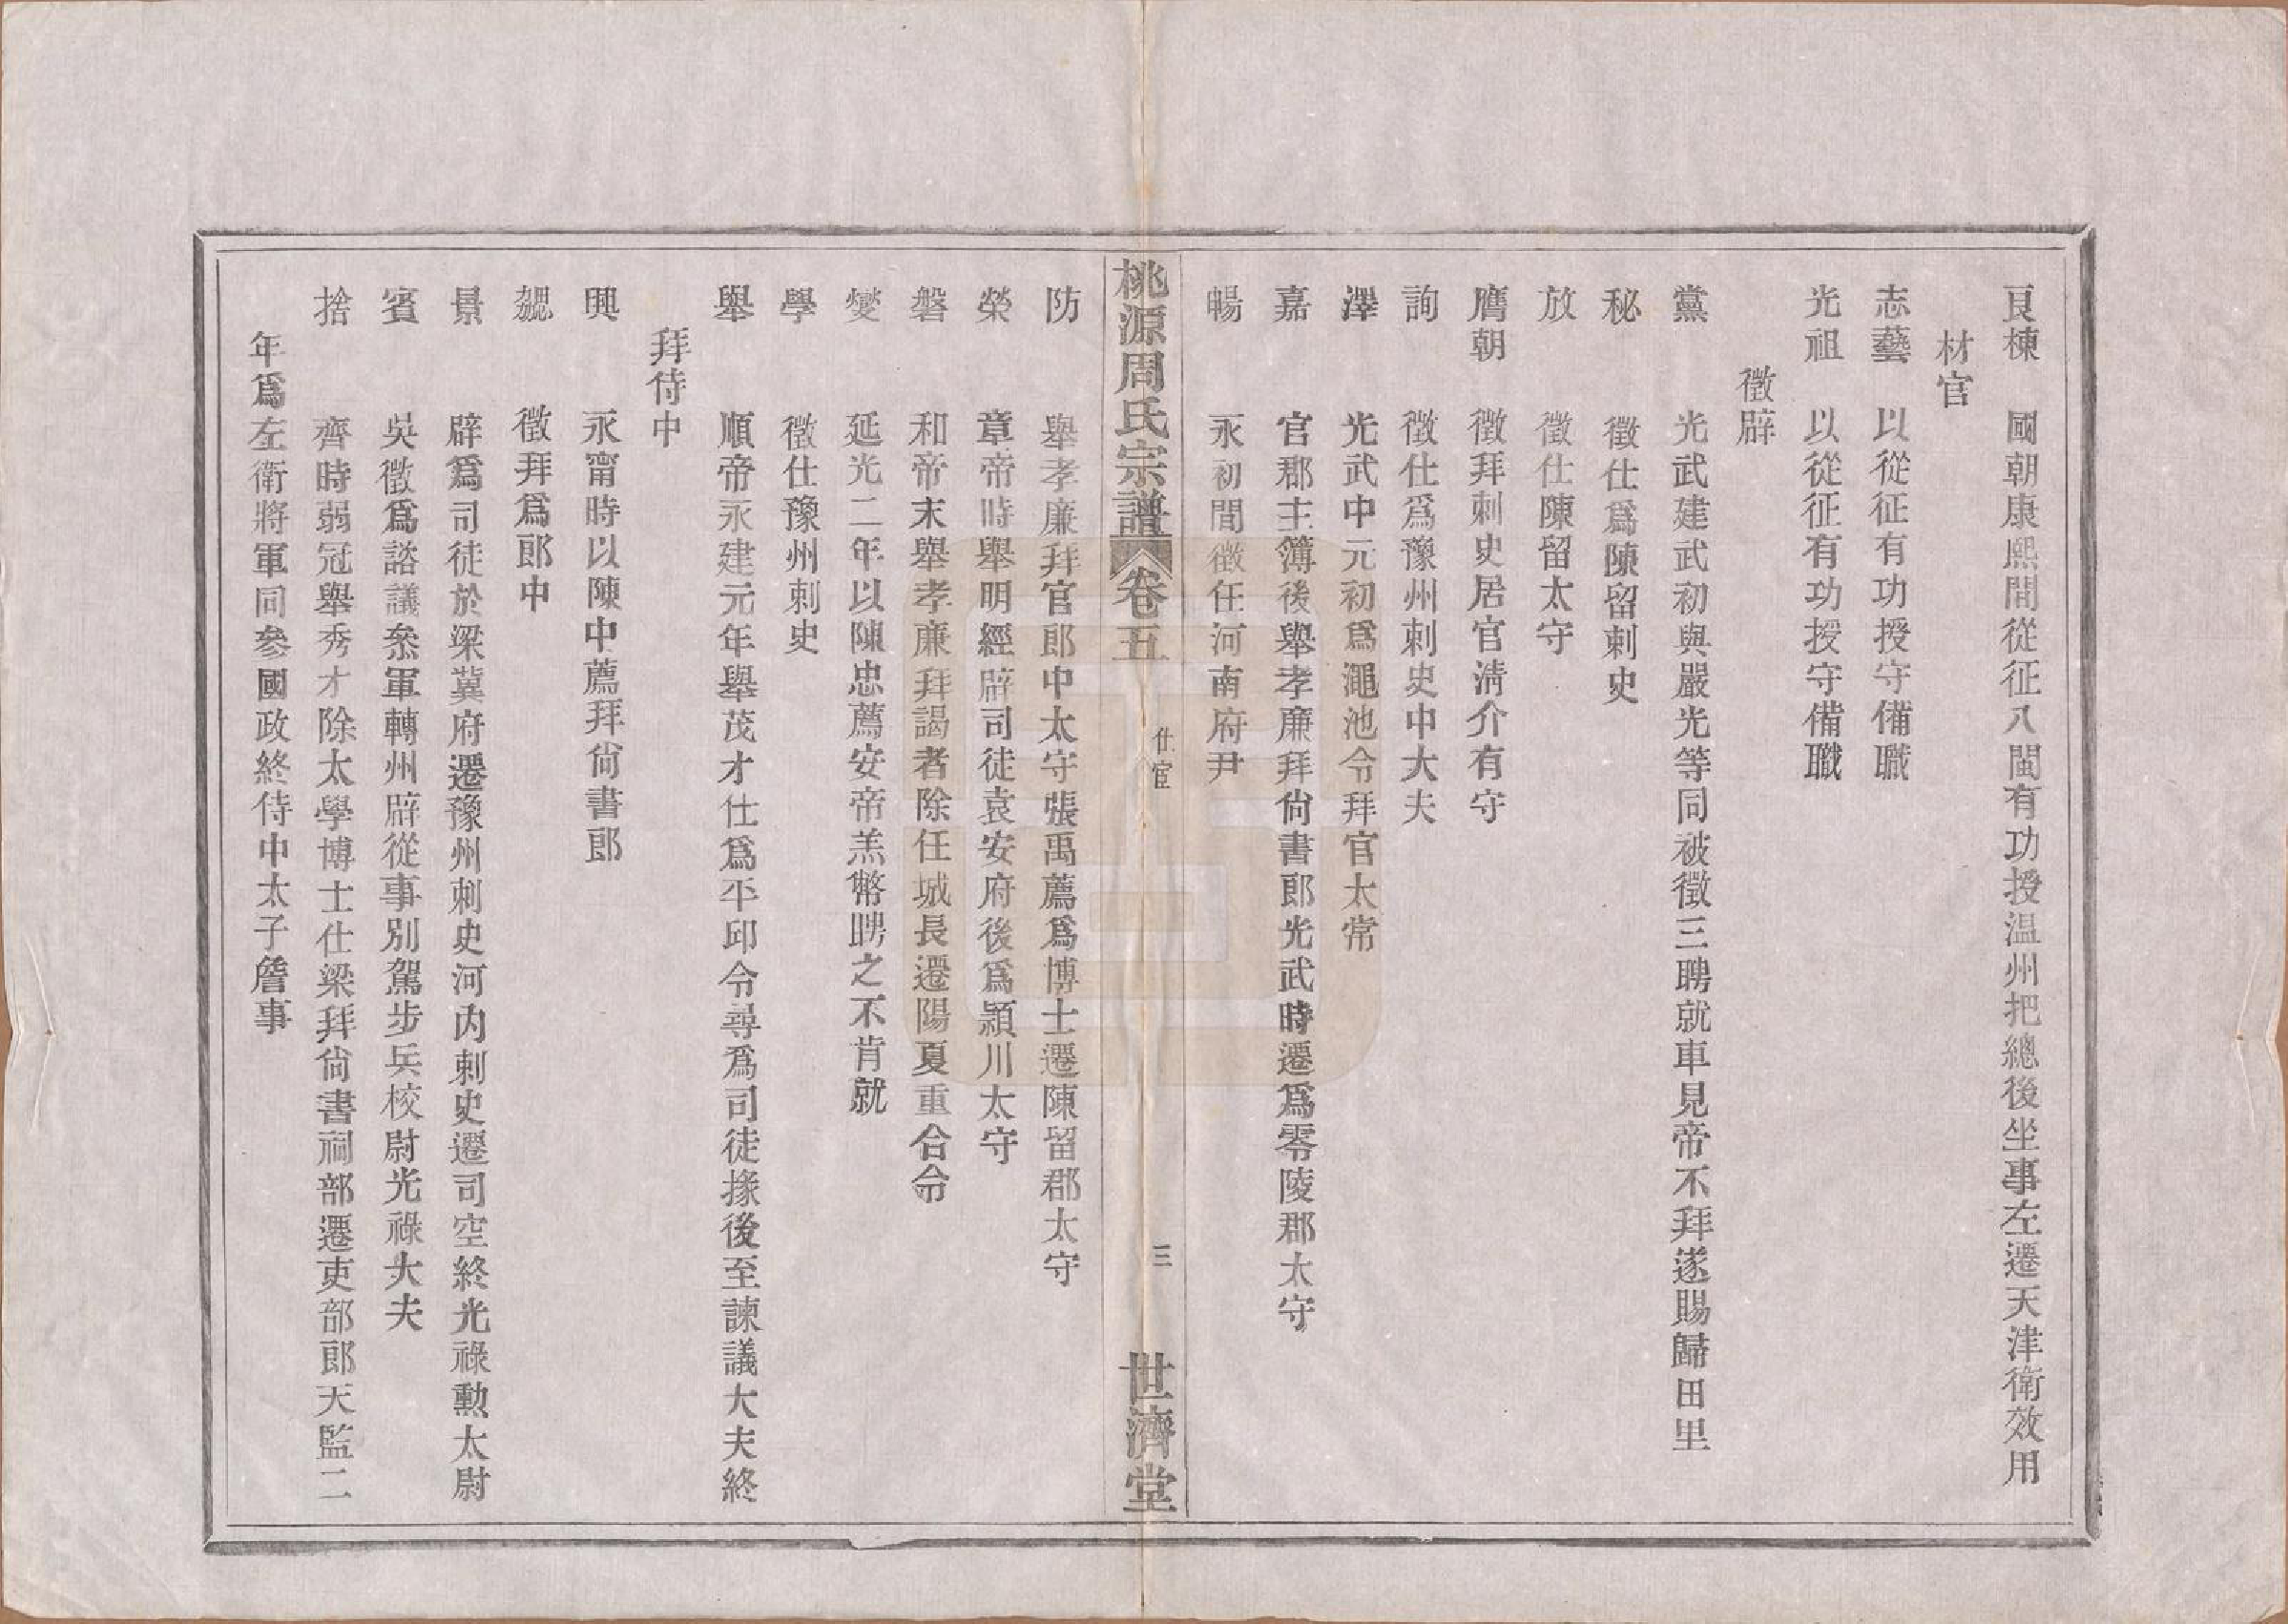 良棟　國朝康熙間從征八閩有功授温州把總後坐事左遷天津衛效用
材官
志藝　以從征有功授守備職
光祖　以從征有功授守備職
徵辟
黨　光武建武初與嚴光等同被徵三聘就車見帝不拜遂賜歸田里
秘　徵仕爲陳留刺史
放　徵仕陳留太守
膺朝　徵拜刺史居官清介有守
詢　徵仕爲豫州刺史中大夫
澤　光武中元初爲澠池令拜官太常
嘉　官郡主簿後舉孝廉拜尙書郎光武時遷爲零陵郡太守
暢　永初間徵任河南府尹
桃源周氏宗譜　卷五　仕宦　三　世濟堂
防　舉孝廉拜官郎中太守張禹薦爲博士遷陳留郡太守
榮　章帝時舉明經辟司徒袁安府後爲潁川太守
磐　和帝末舉孝廉拜謁者除任城長遷陽夏重合令
燮　延光二年以陳忠薦安帝羔幣聘之不肯就
學　徵仕豫州刺史
舉　順帝永建元年舉茂才仕爲平邱令尋爲司徒掾後至諫議大夫終
拜侍中
興　永甯時以陳中薦拜尙書郎
勰　徵拜爲郎中
景　辟爲司徒於梁冀府遷豫州刺史河內刺史遷司空終光祿勳太尉
賓　吳徵爲諮議叅軍轉州辟從事別駕步兵校尉光祿大夫
捨　齊時弱冠舉秀才除太學博士仕梁拜尙書祠部遷吏部郎天監二
年爲左衛將軍同參國政終侍中太子詹事